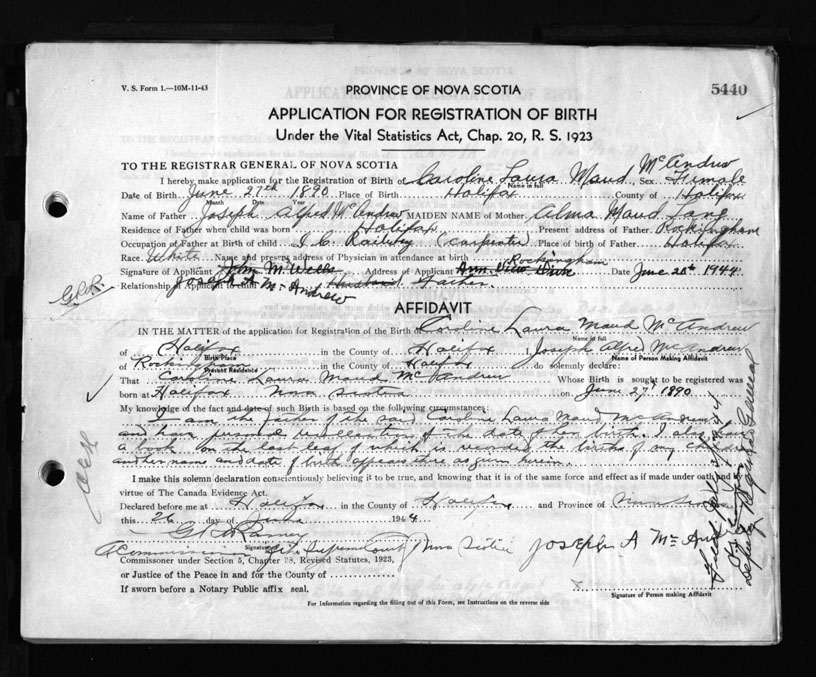 V. S. Form 1.—10M-11-43
5440
PROVINCE OF NOVA SCOTIA
APPLICATION FOR REGISTRATION OF BIRTH
Under the Vital Statistics Act, Chap. 20, R. S. 1923
TO THE REGISTRAR GENERAL OF NOVA SCOTIA
I hereby make application for the Registration of Birth of Caroline Laura Maud McAndrew Sex Female
Name in full
Date of Birth June 27th 1890 Place of Birth Halifax County of Halifax
Month Date Year
Name of Father Joseph Alfred McAndrew MAIDEN NAME of Mother Alma Maud Lang
Residence of Father when child was born Halifax Present address of Father Rockingham
Occupation of Father at Birth of child I. C. Railway (carpenter) Place of birth of Father Halifax
Race White Name and present address of Physician in attendance at birth
Signature of Applicant John M. Wells Address of Applicant Rockingham Date June 20th 1944
Relationship of Applicant Joseph A. McAndrew Husband Father
AFFIDAVIT
IN THE MATTER of the application for Registration of the Birth of Caroline Laura Maud McAndrew
Name in full
of Halifax in the County of Halifax I, Joseph Alfred McAndrew
Birth Place
Name of Person Making Affidavit
of Rockingham in the County of Halifax do solemnly declare:
Present Residence
That Caroline Laura Maud McAndrew Whose Birth is sought to be registered was
born at Halifax Nova Scotia on June 27, 1890
My knowledge of the fact and date of such Birth is based on the following circumstances:
I am the father of the said Caroline Laura Maud McAndrew
and have personal recollection of the date of her birth. I also have
a book on the last leaf of which is recorded the births of my children
and her name and date of birth appears there as given herein.
I make this solemn declaration conscientiously believing it to be true, and knowing that it is of the same force and effect as if made under oath and by
virtue of The Canada Evidence Act.
Declared before me at Halifax in the County of Halifax and Province of Nova Scotia
this 26 day of June 1944
Signature
A Commissioner Supreme Court Nova Scotia Joseph A McAndrew
Commissioner under Section 5, Chapter 38, Revised Statutes, 1923,
or Justice of the Peace in and for the County of
Signature of Person making Affidavit
If sworn before a Notary Public affix seal.
For Information regarding the filling out of this Form, see Instructions on the reverse side
Deputy Registrar General